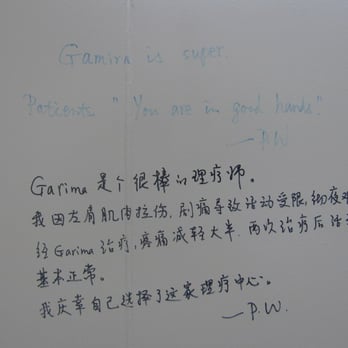 Gamira is super.
Patients " You are in good hands."
—P.W
Garima 是个很棒的理疗师。
我因左肩肌肉拉伤，剧痛导致活动受限，彻夜
经 Garima 治疗，疼痛减轻大半．两次治疗后活
基本正常。
我庆幸自己选择了这家理疗中心。
—P.W.